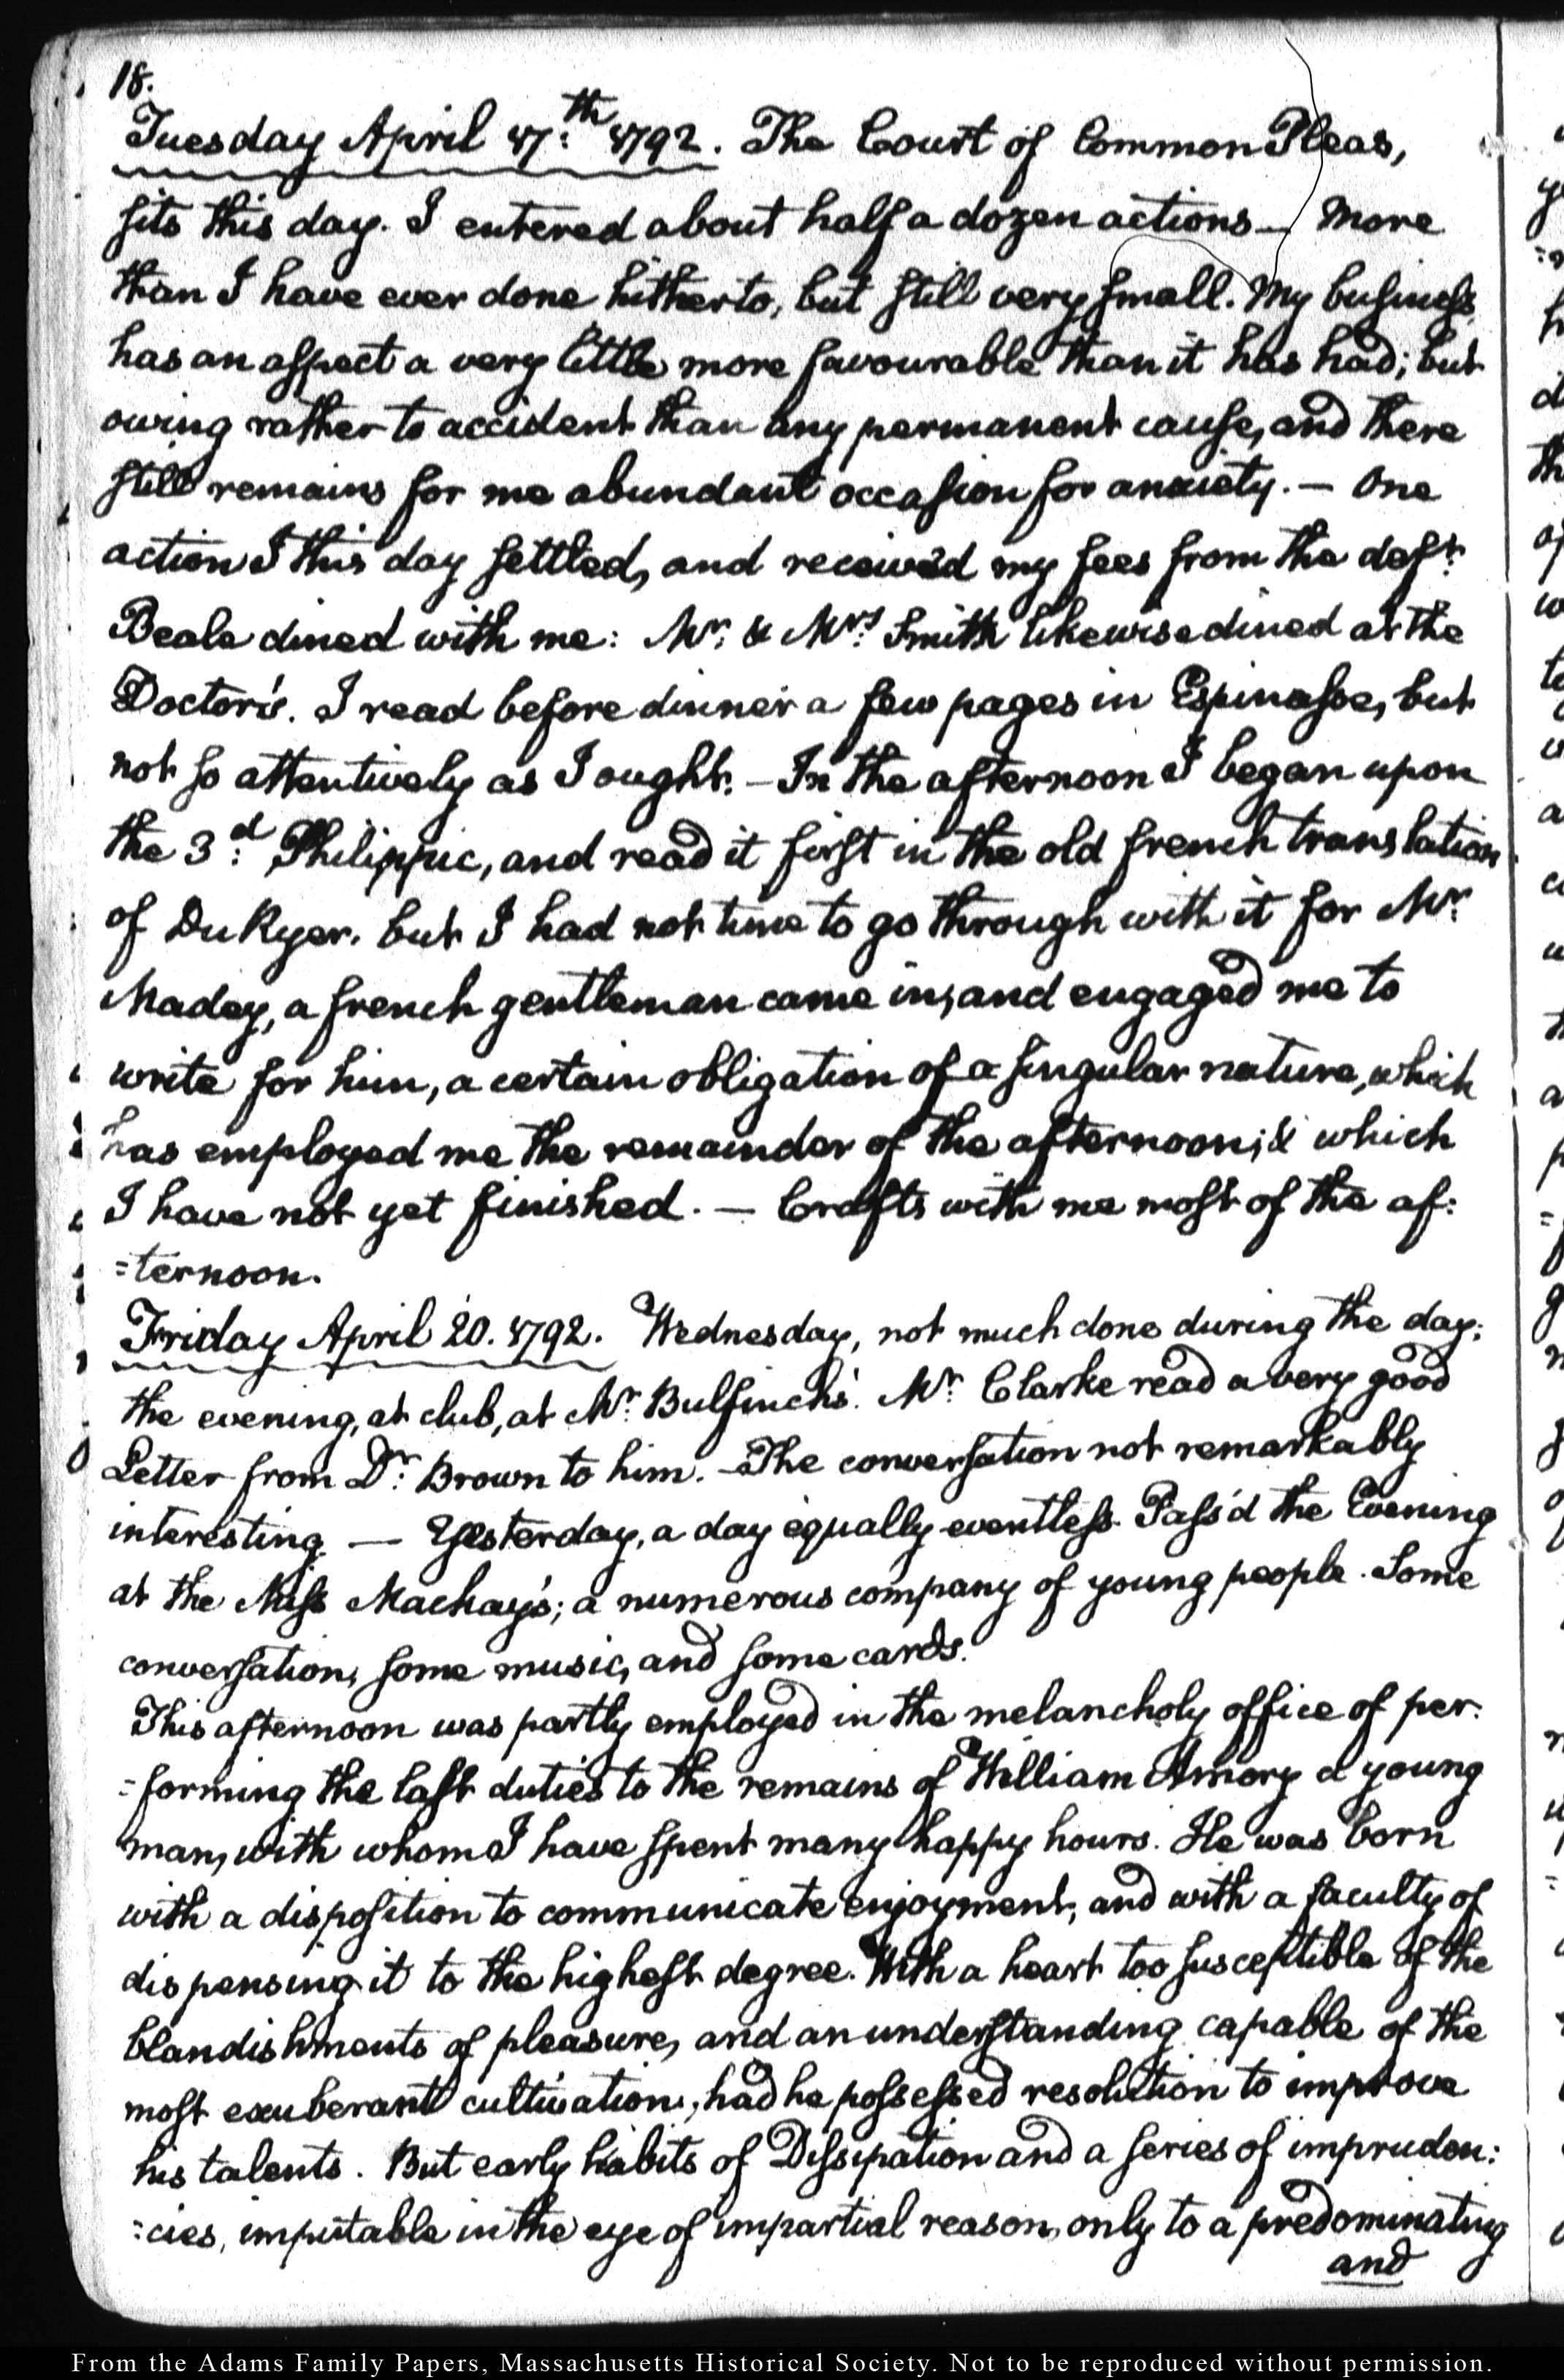 18.
Tuesday April 17.th 1792. The Court of Common Pleas,
sits this day. I entered about half a dozen actions — More
than I have ever done hitherto, but still very small. My business
has an aspect a very little more favourable than it has had; but
owing rather to accident than any permanent cause, and there
still remains for me abundant occasion for anxiety. — One
action I this day settled, and receiv'd my fees from the deft:
Beale dined with me: Mr: & Mrs: Smith likewise dined at the
Doctor's. I read before dinner a few pages in Espinasse, but
not so attentively as I ought. — In the afternoon I began upon
the 3:d Philippic, and read it first in the old french translation
of Du Ryer. but I had not time to go through with it for Mr:
Madey, a french gentleman came in, and engaged me to
write for him, a certain obligation of a singular nature, which
has employed me the remainder of the afternoon; & which
I have not yet finished. — Crafts with me most of the af:
=ternoon.
Friday April 20. 1792. Wednesday, not much done during the day;
the evening, at club, at Mr: Bulfinch's. Mr: Clarke read a very good
Letter from Dr: Brown to him. — The conversation not remarkably
interesting. — Yesterday, a day equally eventless. Pass'd the Evening
at the Miss Mackay's; a numerous company of young people. Some
conversation, some music, and some cards.
This afternoon was partly employed in the melancholy office of per:
=forming the last duties to the remains of William Amory a young
man, with whom I have spent many happy hours. He was born
with a disposition to communicate enjoyment, and with a faculty of
dispensing it to the highest degree. With a heart too susceptible of the
blandishments of pleasure, and an understanding capable of the
most exuberant cultivation, had he possessed resolution to improve
his talents. But early habits of Dissipation and a series of impruden:
=cies, imputable in the eye of impartial reason, only to a predominating
and
From the Adams Family Papers, Massachusetts Historical Society. Not to be reproduced without permission.